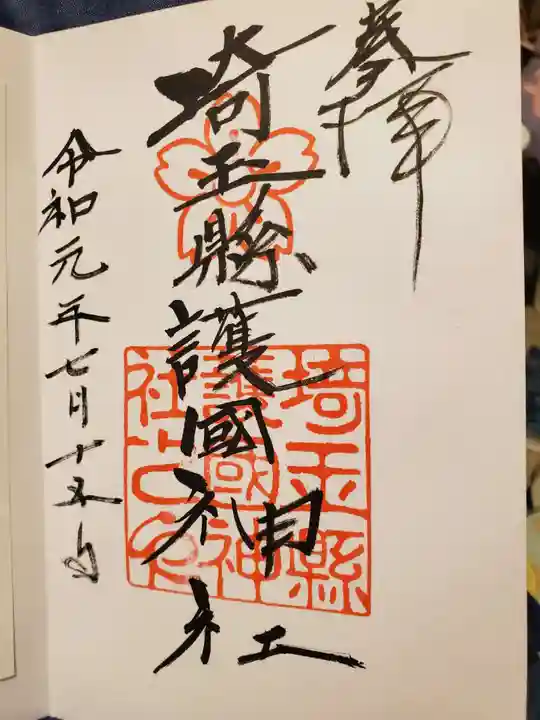 奉拝
埼玉縣護國神社
埼玉縣
護國神
社之印
令和元年七月十五日